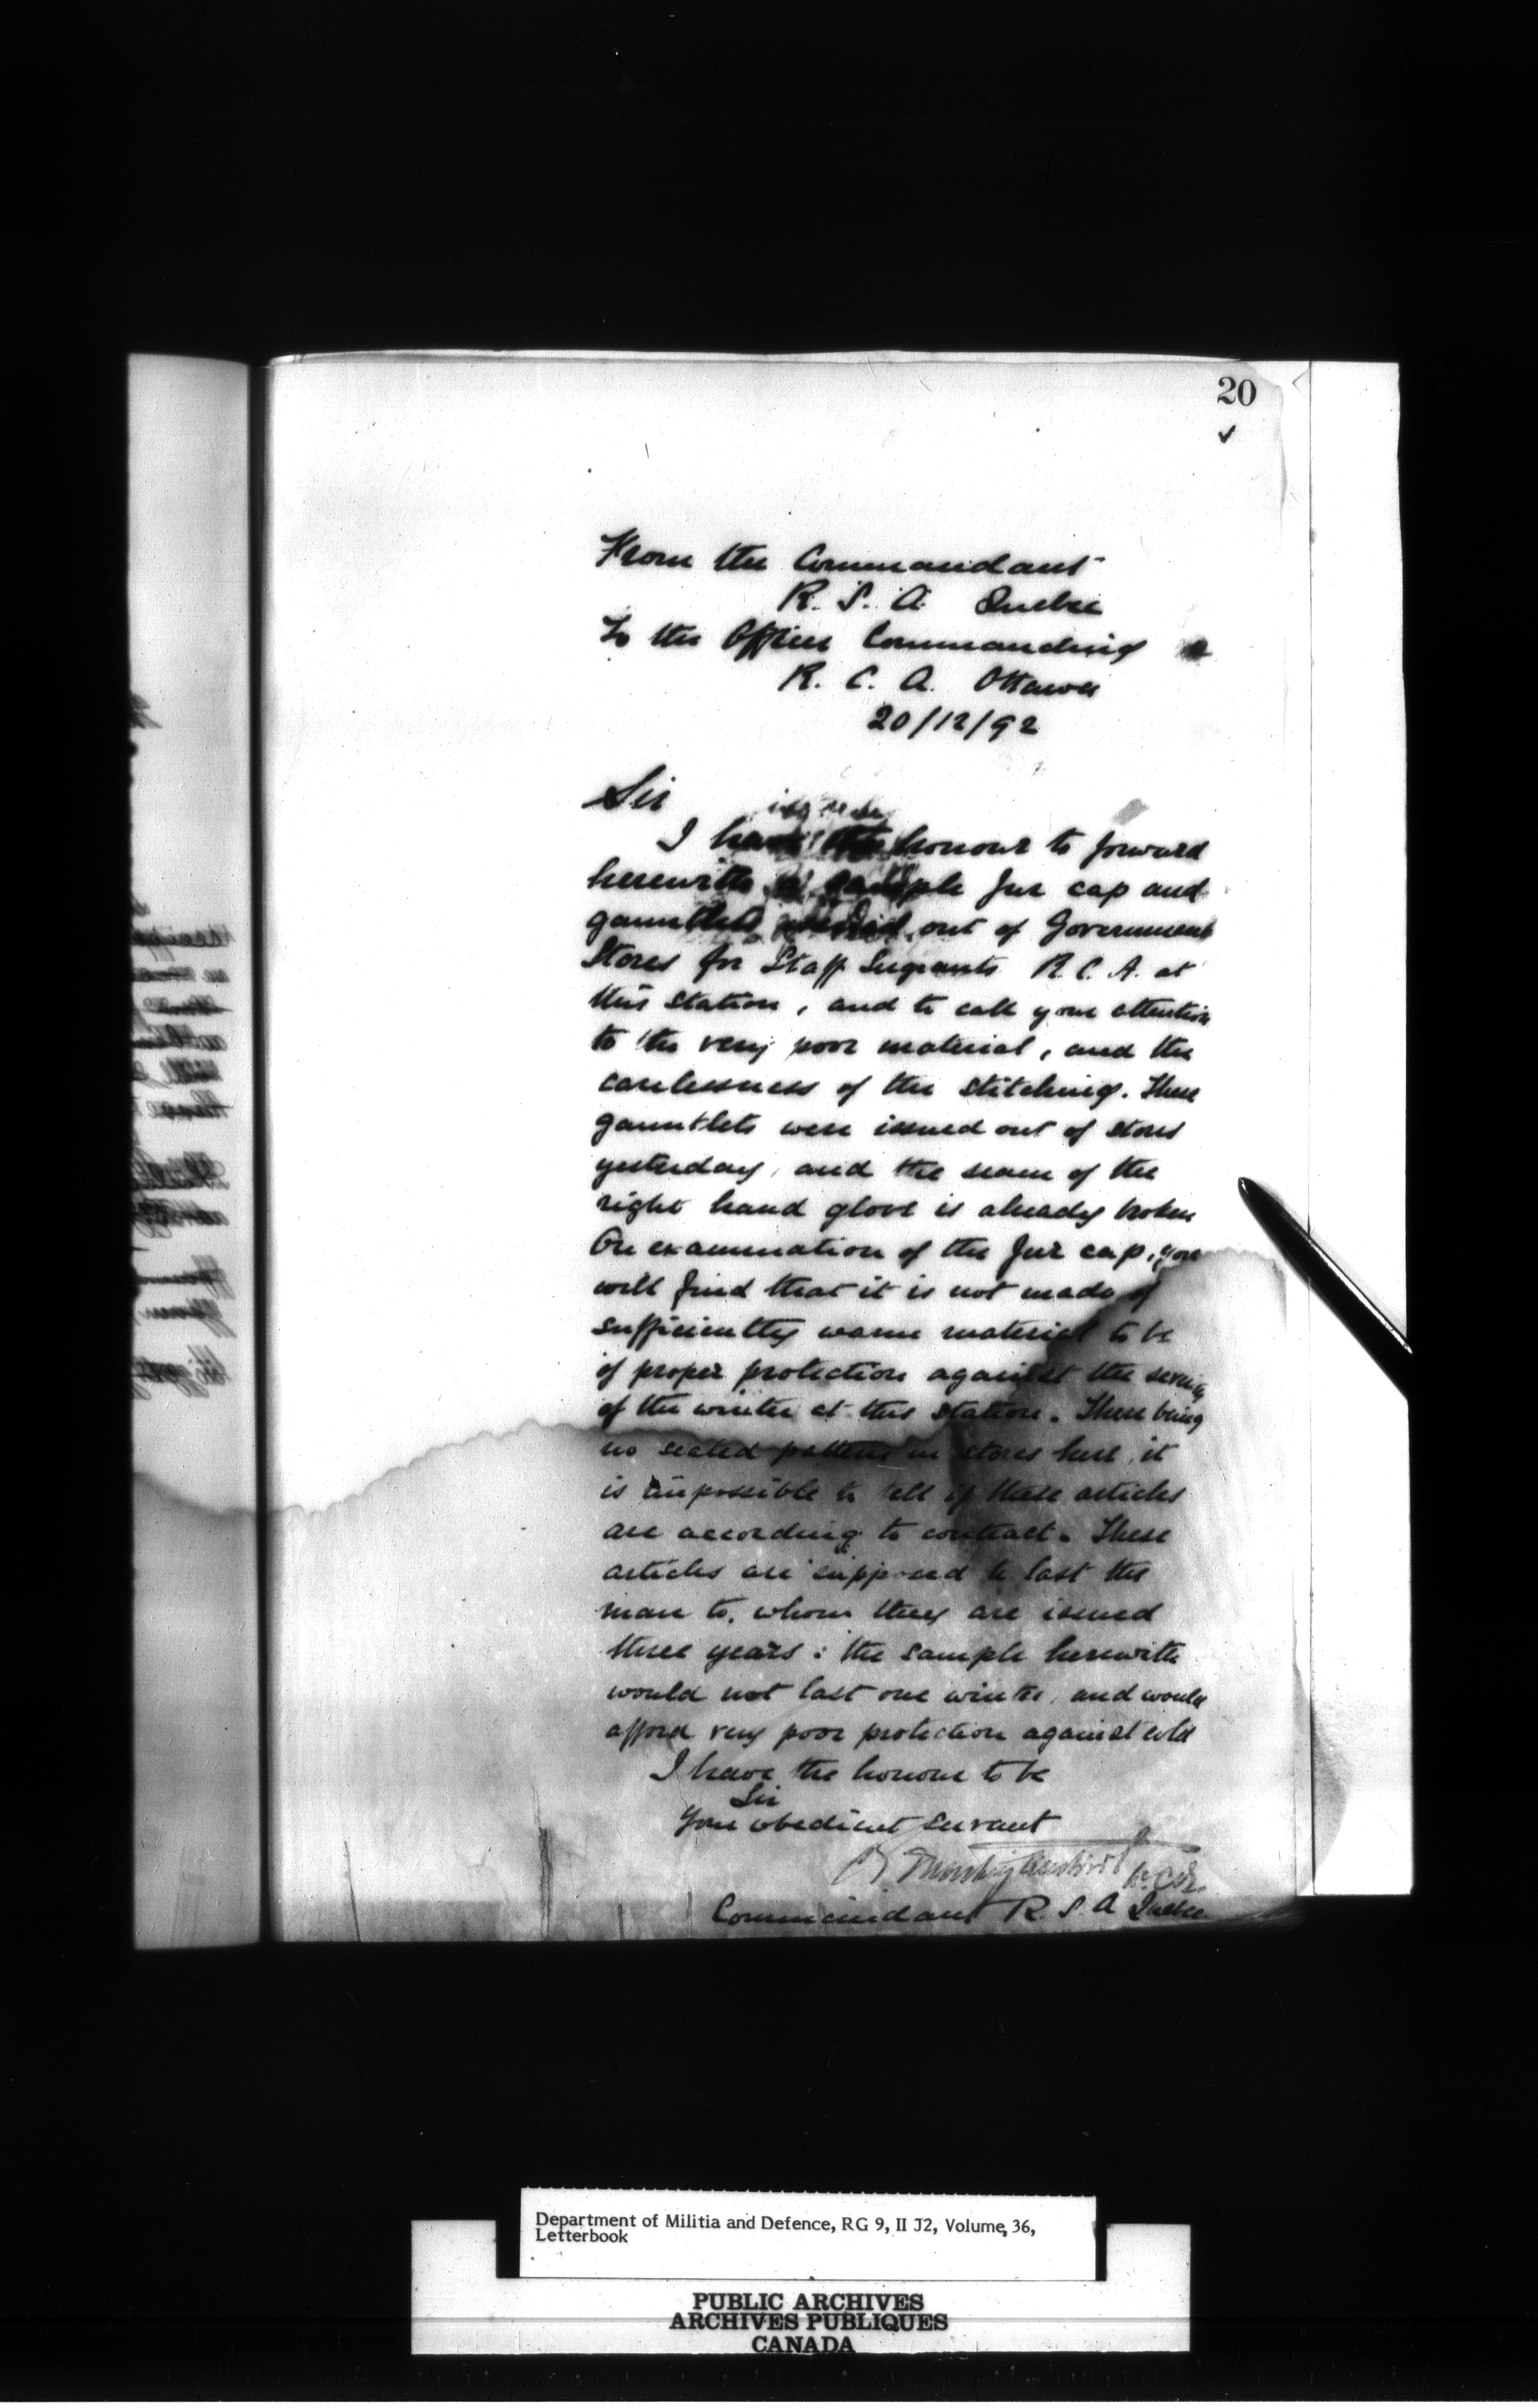 20
From the Commandant
R. S. A. Quebec
To the Officer Commanding
R. C. A. Ottawa
20/12/92
Sir
I have the honour to forward
herewith a sample fur cap and
gauntlets issued out of Government
Stores for Staff Sergeants R. C. A. at
this Station, and to call your attention
to the very poor material, and the
carelessness of the stitching. These
gauntlets were issued out of stores
yesterday, and the seam of the
right hand glove is already broken
On examination of the fur cap, you
will find that it is not made of
sufficiently warm material to be
of proper protection against the severity
of the winter at this station. There being
no sealed pattern in stores here, it
is impossible to tell if these articles
are according to contract. These
articles are supposed to last the
man to whom they are issued
three years: the sample herewith
would not last one winter, and would
afford very poor protection against cold
I have the honour to be
Sir
Your obedient servant
Lt Col
Commandant R. S. A Quebec
Department of Militia and Defence, RG 9, II J2, Volume 36,
Letterbook
PUBLIC ARCHIVES
ARCHIVES PUBLIQUES
CANADA